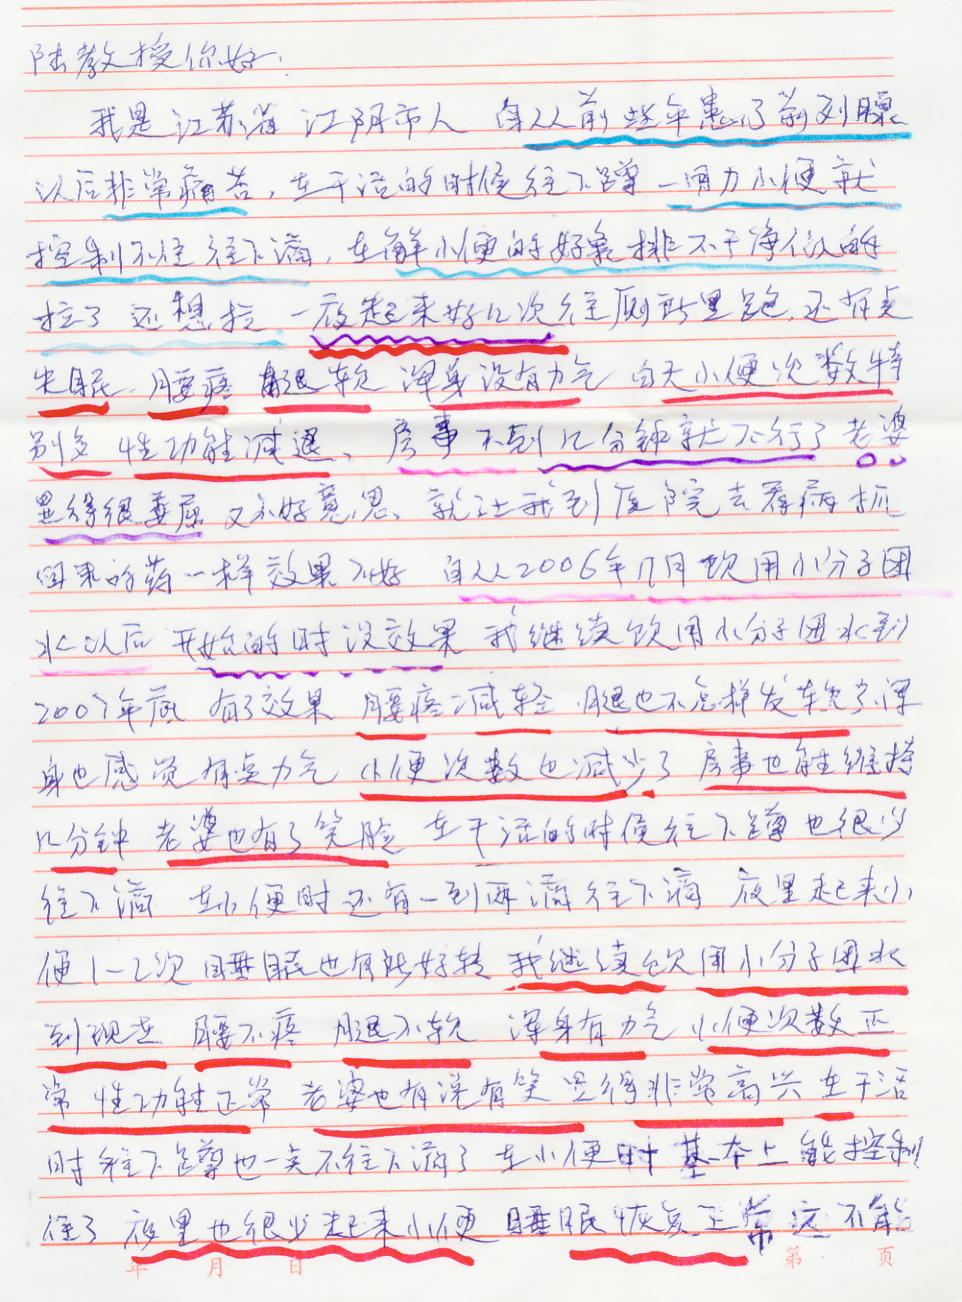 陆教授你好.
我是江苏省江阴市人 自从前些年患了前列腺
以后非常痛苦，在干活的时候往下蹲一用力小便就
控制不住往下滴，在解小便的时好象排不干净似的
拉了还想拉 一夜起来好几次往厕所里跑，还有点
失眠. 腰疼 腿软 浑身没有力气 白天小便次数特
别多 性功能减退、房事不到几分钟就不行了 老婆
显得很委屈 又不好意思、就让我到医院去看病抓
回来的药一样效果不好 自从2006年 月饮用小分子团
水以后 开始的时没效果 我继续饮用小分子团水到
2007年底 有了效果 腰疼减轻.腿也不怎样发软了.浑
身也感觉有点力气 小便次数也减少了 房事也能维持
几分钟 老婆也有了笑脸 在干活的时候往下蹲也很少
往下滴 在小便时还有一到两滴往下滴 夜里起来小
便1-2次 睡眠也有些好转 我继续饮用小分子团水
到现在 腰不疼 腿不软 浑身有力气 小便次数正
常 性功能正常 老婆也有说有笑 显得非常高兴 在干活
时往下蹲也一点不往下滴了 在小便时基本上能控制
住了 夜里也很少起来小便 睡眠恢复正常 这不能
年 月 日 第 页